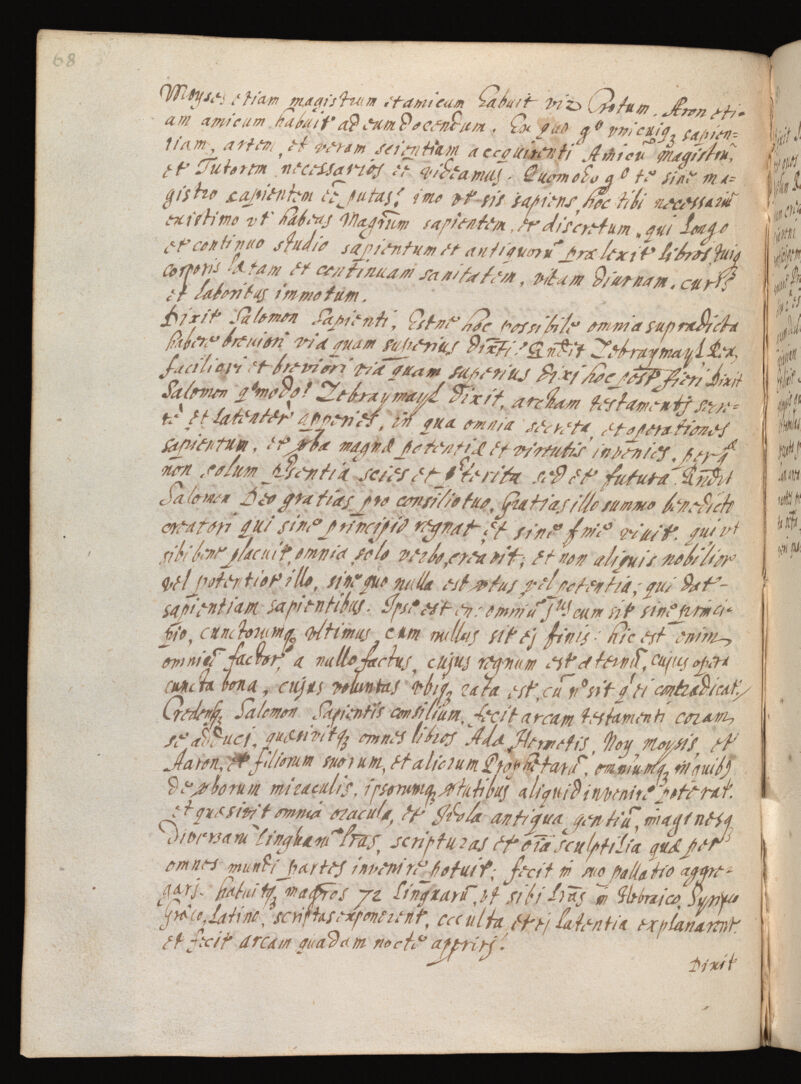 68
Moyses etiam magistrum et amicum habuit viz Crotum. Aron eti=
am amicum habuit ad eum docendum. Ex quo gº vnicuiq₃ sapien=
tiam, artem, et veram scientiam accquirenti Amicū magistrū,
et Tutorem necessarios eē videamus. Quomodo gº te sine ma=
gistro sapientem eē putas? imo vt sis sapiens, hoc tibi necessariū
existimo vt habeas Magr̄um sapientem, et discretum, qui longo
et continuo studio sapientum et antiquorū prælexit libros,
corporis lætam et continuam sanitatem, vitam diurnam,
et laboribus immotum.
Dixit Salomon Sapienti, Estne hoc possibile omnia supradicta
habere breviori via quam superius dixti? Rn̄dit Zebraymayl Rex,
faciliori et breviori via quam superius dixi hoc post fieri. Dixit
Salomon qºmodo? Zebraymayl dixit, archam testamentj secre=
tè et latentèr apperies, in qua omnia secreta, et operationes
sapientum, et v̄ba magnæ potentiæ et virtutis invenies, per q̄
non solum p̄sentia scies et p̄terita sed et futura. Rn̄dit
Salomon Deo gratias pro consilio tuo, Gratias illo summo benedicto
creatori qui sine principio regnat et sine fine vivit. qui vt
sibi bene placuit, omnia solo verbo, creavit, et non aliquis nobilior
vel potentior illo, sine quo nulla est v̄tus vel potentia, qui dat
sapientiam sapientibus. Ipse est omniū cum sit sine princi=
pio, cunctorumq₃ vltimus, cum nullus sit ej finis: hic est enim
omniū factor, a nullo factus, cujus regnum est æternū, cujus opera
cuncta bona, cujus voluntas vbiq₃ rata est, cū nº sit q' ei contradicat.
Credensq₃ Salomon Sapientis consilium, fecit arcam testamenti coram
se adducj, quæsivitq₃ omnes libros Adæ, Hermetis, Noy, Moysis, et
Aaron, et filiorum suorum, et aliorum Prophetarū, omniumq₃ in quib₃
de v̄borum miraculis, ipsorumq₃ v̄tutibus aliquid invenire poterat.
et quæsivit omnia oracula, et Idola antiqua gentiū, maginesq₃
Diversarū linguarū lr̄as, scripturas et oīa sculptilia quæ per
omnes mundi partes invenire potuit, fecit in suo pallatio aggre=
garj. habuitq₃ magr̄os 72 Linguarū, vt sibi lr̄as in Hebraico, Syrico
Græco, Latino, scriptas exponerent, occulta, et ej latentia explanarent.
et fecit arcam quadam nocte apperirj.
Dixit